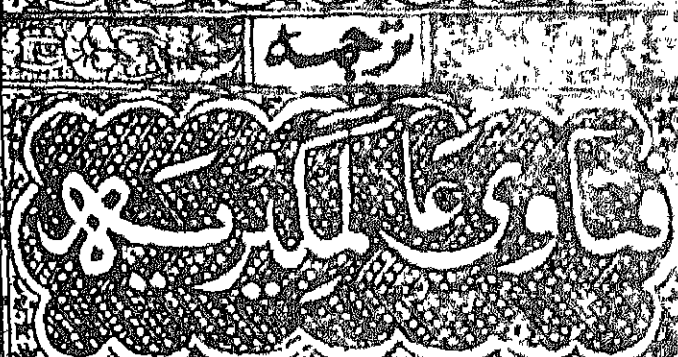 ترجمہ
فتاوی عالمگیریہ